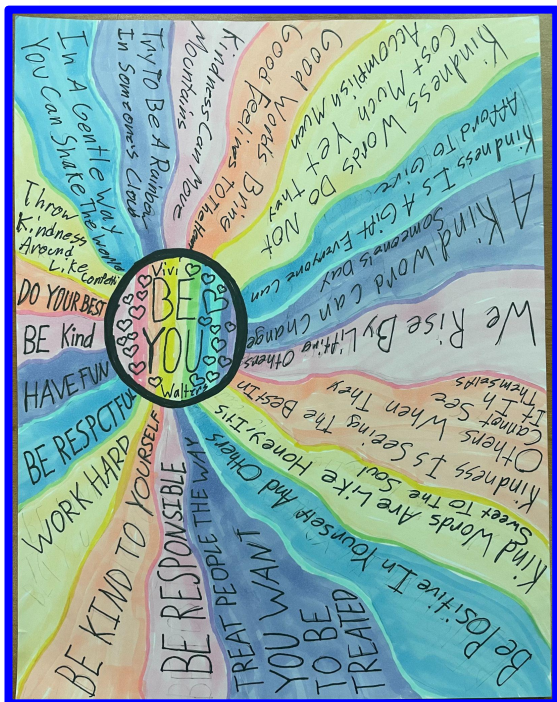 Vivi
BE
YOU
In A Gentle Way
You Can Shake The World
Try To Be A Rainbow
In Someone's Cloud
Kindness Can Move
Mountains
Good Words Bring
Good Feelings To The Heart
Kindness Words Do Not
Cost Much Yet They
Accomplish Much
Kindness Is A Gift Everyone Can
Afford To Give
A Kind Word Can Change
Someone's Day
We Rise By Lifting Others
Kindness Is Seeing The Best In
Others When They
Cannot See
It In
Themselfs
Kind Words Are Like Honey, It's
Sweet To The Soul
Be Positive In Yourself And Others
TREAT PEOPLE THE WAY
YOU WANT
TO BE
TREATED
BE RESPONSEBLE
BE KIND TO YOURSELF
WORK HARD
BE RESPCTFUL
HAVE FUN
BE Kind
DO YOUR BEST
Throw
Kindness
Around
Like Confetti